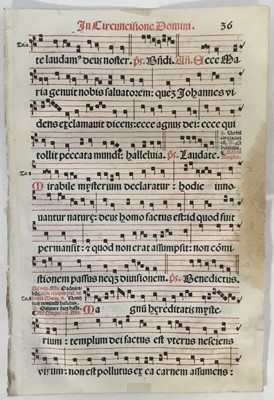 In Circuncisione Domini. 36
te laudam⁹ deus noster. p̄s. Bn̄di. Añ. Ecce Ma
ria genuit nobis saluatorem: quez Johannes vi
dens exclamauit dicens: ecce agnus dei: ecce qui
tollit peccata mundi: halleluia. p̄s. Laudate.
Mirabile mysterium declaratur: hodie inno
uantur nature: deus homo factus est: id quod fuit
permansit: & quod non erat assumpsit: non cōmi
stionem passus neqz diuisionem. p̄s. Benedictus.
Magnū hereditatis myste
rium: templum dei factus est vterus nesciens
virum: non est pollutus ex ea carnem assumens: